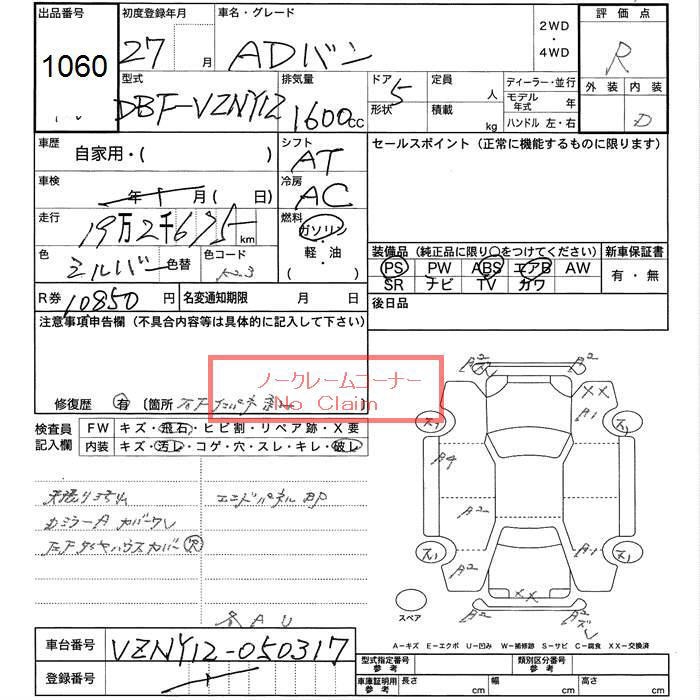 出品番号 初度登録年月 車名・グレード 2WD・4WD 評価点
1060 27 月 ADバン R
外装 内装
D
型式 排気量 ドア 形状 定員 積載 ディーラー・並行
DBF-VZNY12 1600cc 5 人 kg モデル年式 年
ハンドル 左・右
車歴 自家用・( ) シフト AT セールスポイント（正常に機能するものに限ります）
車検 年 月 ( 日) 冷房 AC
走行 19万2千675 km 燃料 ガソリン・軽・油 ( )
色 シルバー 色替 色コード
装備品（純正品に限り○をつけてください） 新車保証書
PS PW ABS エアB AW 有・無
SR ナビ TV カワ
R券 10850 円 名変通知期限 月 日 後日品
注意事項申告欄（不具合内容等は具体的に記入して下さい）
ノークレームコーナー
No Claim
修復歴 有 〔箇所
検査員記入欄 FW キズ・飛石・ヒビ割・リペア跡・X要
内装 キズ・汚レ・コゲ・穴・スレ・キレ・破レ
エンドパネルBP
カミラーA カバーワレ
タイヤハウスカバー
A2 A2
XX
A1
A4
A2
A2 A1
A2
XX
A2 A2
スペア
A-キズ E-エクボ U-凹み W-補修跡 S-サビ C-腐食 XX-交換済
車台番号 VZNY12-050317
登録番号
型式指定番号 参考 類別区分番号 参考
車庫証明用 参考 長さ cm 幅 cm 高さ cm